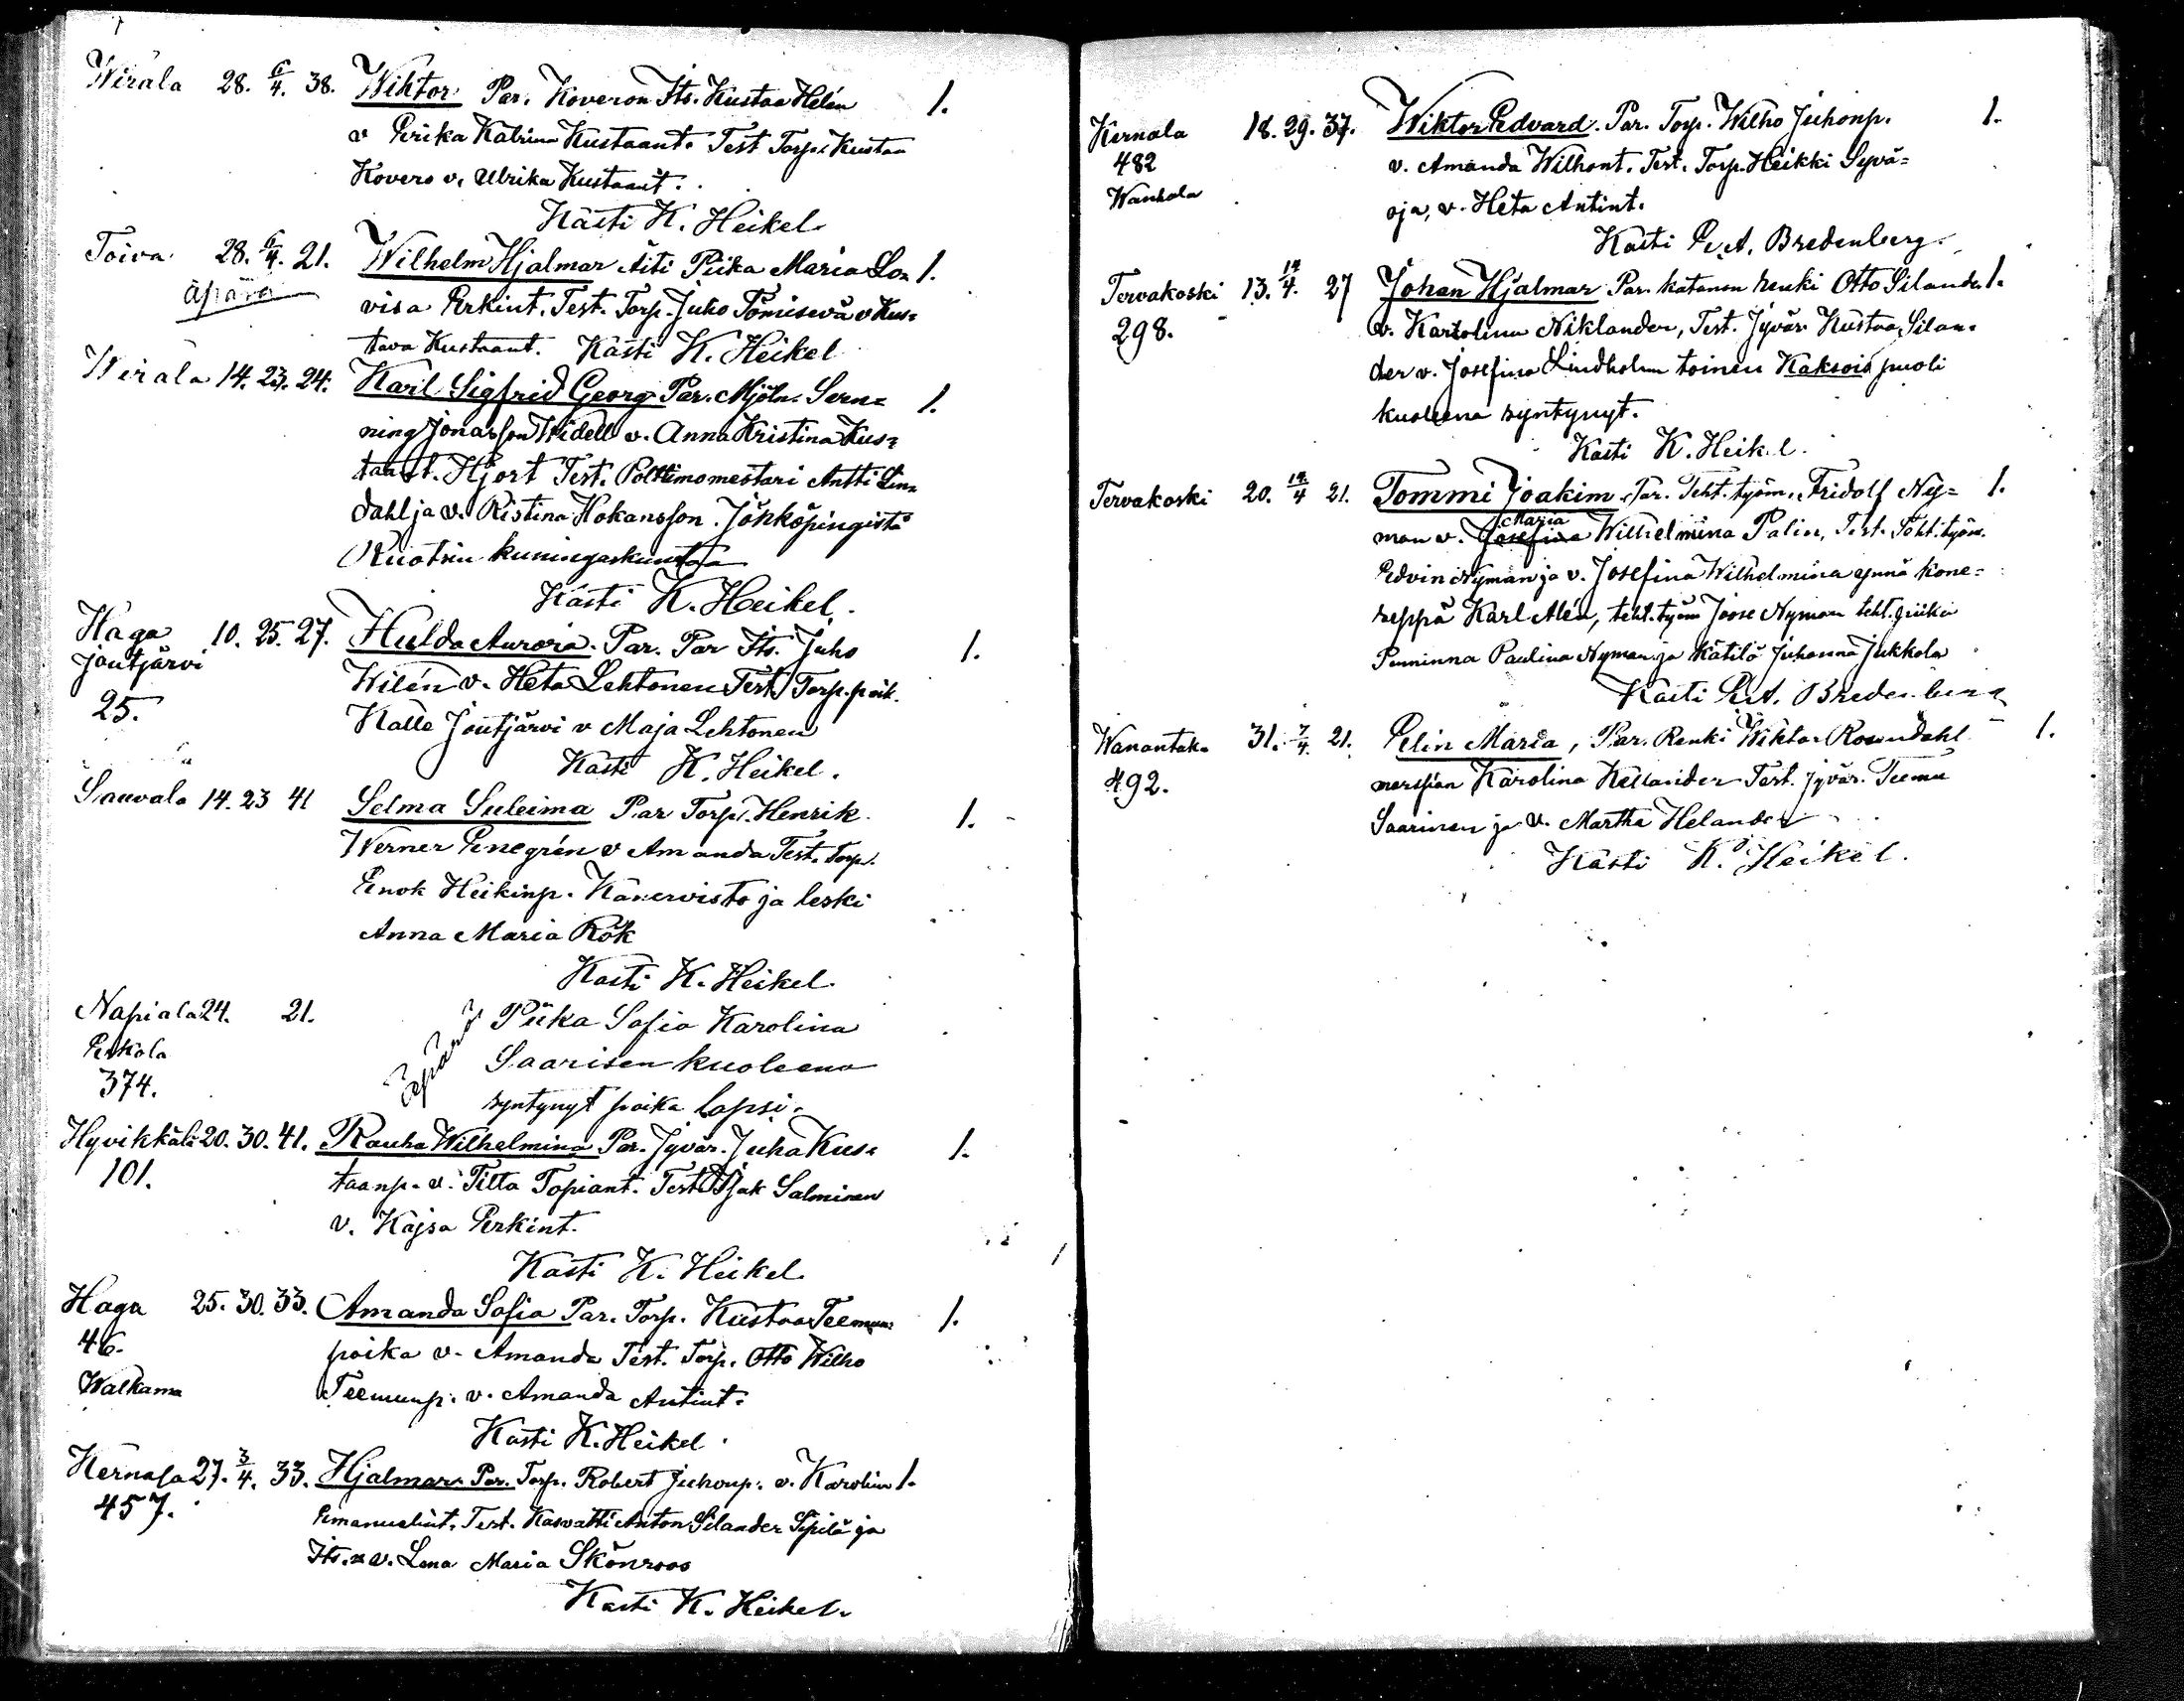 Wirälä 28. 6/4. 38. Wiktor Par. Koveron Its. Kustaa Helén 1.
v Erika Katrina Kustaant. Test Torp. Kustaa
Kovero v. Ulrika Kustaant.
Kasti K. Heikel
Toiva 28. 6/4. 21. Wilhelm Hjalmar Äiti Piika Maria Lo= 1.
äpärä
visa Erkint. Test. Torp. Juho Tömisevä v Kus=
tava Kustaant. Kasti K. Heikel
Wirälä 14. 23. 24. Karl Sigfrid Georg Par. Mjöln. Sern= 1.
ning Jonasson Widell v. Anna Kristina Kus=
taant. Hjort Test. Polttimomestari Antti Lin=
dahl ja v. Ristina Hokansson. Jönköpingistä
Ruotsin kuningaskuntaa
Kasti K. Heikel.
Haga 10. 25. 27. Hulda Aurora. Par. Par Its. Juho 1.
Joutjärvi
Wilén v. Heta Lehtonen Test. Torp. poik.
25.
Kalle Joutjärvi v Maja Lehtonen
Kasti K. Heikel.
Sauvala 14. 23 41 Selma Suleima Par Torp. Henrik 1.
Werner Enegrén v Amanda Test. Torp.
Enok Heikinp. Kanervisto ja leski
Anna Maria Rök
Kasti K. Heikel
Napiala 24. 21. Piika Sofia Karolina
Eskola
äpärä
Saarisen kuoleena
374.
syntynyt poika lapsi.
Hyvikkälä 20. 30. 41. Rauha Wilhelmina Par. Jyvär. Juha Kus= 1.
101.
taanp. v. Tilta Topiant. Test Isak Salminen
v. Kajsa Erkint.
Kasti K. Heikel
Haga 25. 30. 33. Amanda Sofia Par. Torp. Kustaa Teemun= 1.
46.
poika v. Amanda Test. Torp. Otto Wilho
Walkama
Teemunp. v. Amanda Antint.
Kasti K. Heikel
Kernala 27. 3/4. 33. Hjalmar Par. Torp. Robert Juhonp. v. Karolina 1.
457.
Emanuelint. Test. Kasvatti Anton Silander Sipilä ja
Its. v. Lena Maria Skönroos
Kasti K. Heikel.
Kernala 18. 29. 37. Wiktor Edvard. Par. Torp. Wilho Juhonp. 1.
482
v. Amanda Wilhont. Test. Torp. Heikki Syvä=
Wanhala
oja, v. Heta Antint.
Kasti E. A. Bredenberg.
Tervakoski 13. 14/4. 27 Johan Hjalmar Par. katanon renki Otto Silander 1.
298.
v. Karolina Niklander, Test. Jyvär Kustaa Silan=
der v. Josefina Lindholm toinen Kaksois puoli
kuoleena syntynyt.
Kasti K. Heikel.
Tervakoski 20. 14/4 21. Tommi Joakim. Par. Teht. työm. Fridolf Ny= 1.
Maria
man v. Josefina Wilhelmina Palin, Test. Teht. työm.
Edvin Nyman ja v. Josefina Wilhelmina ynnä kone=
seppä Karl Alén, teht. työm Joose Nyman teht. piika
Penninna Paulina Nyman ja kätilö Johanna Jukkola
Kasti E. A. Bredenberg
Wanantak. 31. 7/4. 21. Elin Maria, Par. Renki Wiktor Rosendahl 1.
492.
morsian Karolina Kellander Test. Jyvär. Teemu
Saarinen ja v. Martha Helander
Kasti K. Heikel.